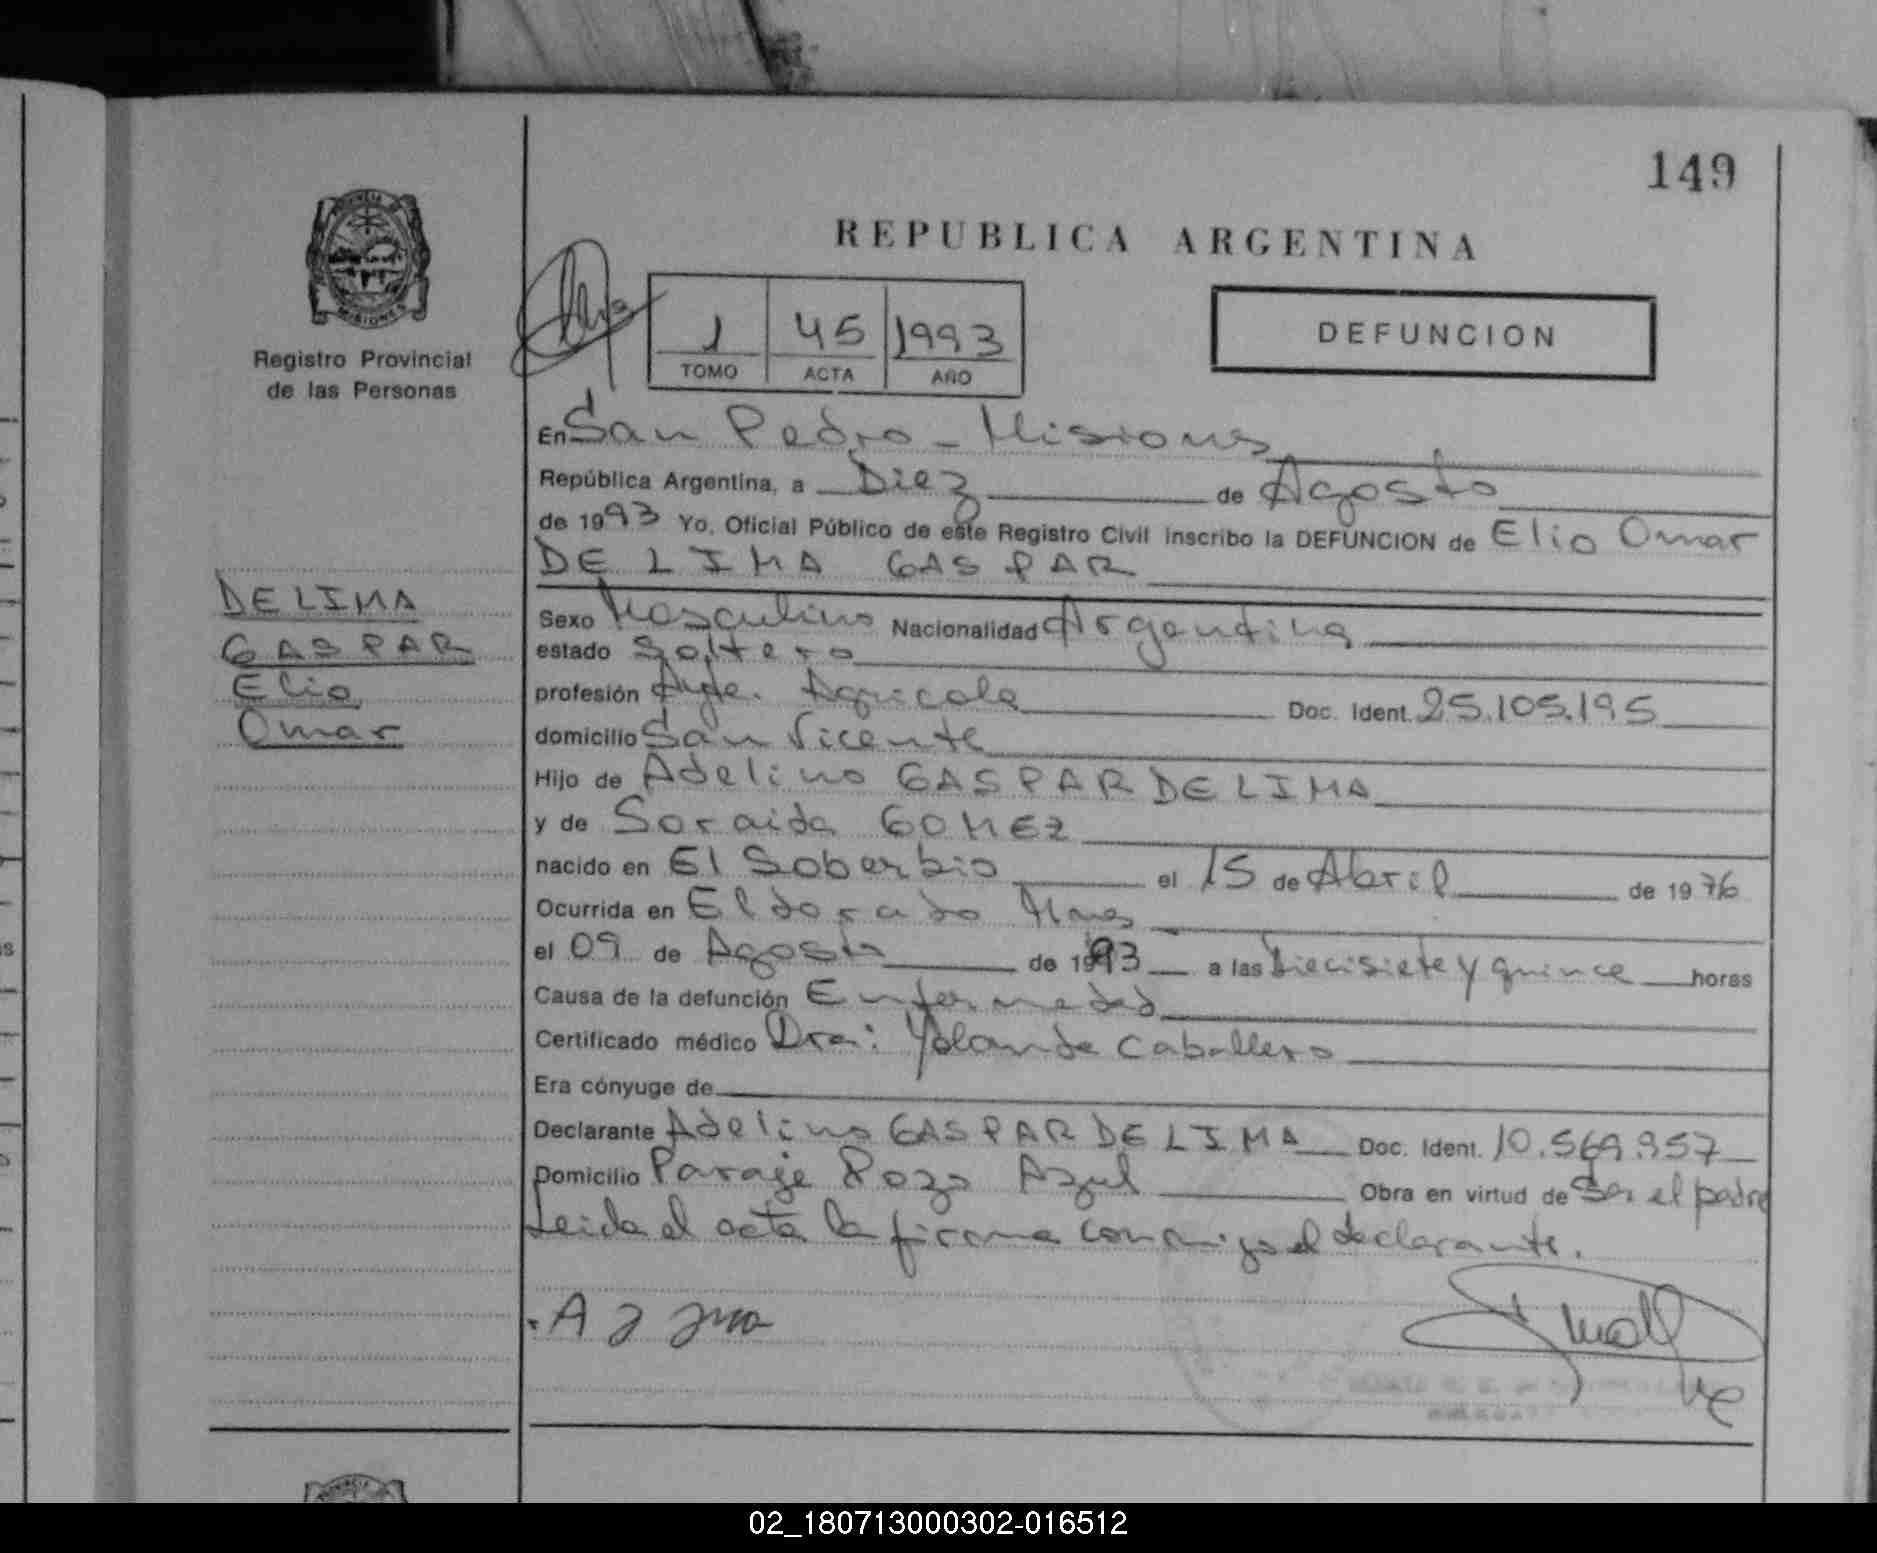 149
REPUBLICA ARGENTINA
PROVINCIA
MISIONES
Registro Provincial
de las Personas
1 45 1993
TOMO ACTA AÑO
DEFUNCION
En San Pedro - Misiones
República Argentina, a Diez de Agosto
de 1993 Yo, Oficial Público de este Registro Civil inscribo la DEFUNCION de Elio Omar
DE LIMA GASPAR
DE LIMA
GASPAR
Elio
Omar
Sexo Masculino Nacionalidad Argentina
estado Soltero
profesión Ayte. Agricola Doc. Ident. 25.105.195
domicilio San Vicente
Hijo de Adelino GASPAR DE LIMA
y de Soraida GOMEZ
nacido en El Soberbio el 15 de Abril de 1976
Ocurrida en Eldorado Mnes
el 09 de Agosto de 1993 a las Diecisiete y quince horas
Causa de la defunción Enfermedad
Certificado médico Dra: Yolanda Caballero
Era cónyuge de
Declarante Adelino GASPAR DE LIMA Doc. Ident. 10.569.957
Domicilio Paraje Pozo Azul Obra en virtud de Ser el padre
Leida el acta la firma conmigo el declarante.
02_180713000302-016512